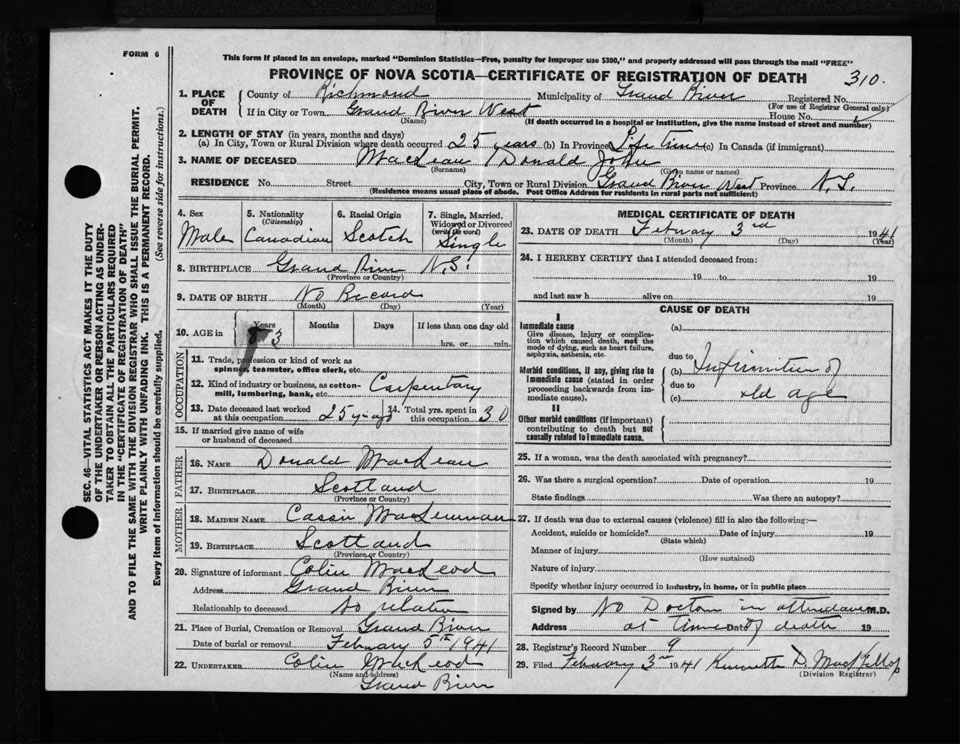 FORM 6
This form if placed in an envelope, marked "Dominion Statistics—Free, penalty for improper use $300," and properly addressed will pass through the mail "FREE"
PROVINCE OF NOVA SCOTIA—CERTIFICATE OF REGISTRATION OF DEATH 310.
1. PLACE OF DEATH
County of Richmond Municipality of Grand River Registered No.
(For use of Registrar General only)
If in City or Town Grand River West House No.
(Name) (If death occurred in a hospital or institution, give the name instead of street and number)
2. LENGTH OF STAY (in years, months and days)
(a) In City, Town or Rural Division where death occurred 25 years (b) In Province Life time (c) In Canada (if immigrant)
3. NAME OF DECEASED MacLean / Donald John
(Surname) (Given name or names)
RESIDENCE No. Street City, Town or Rural Division Grand River West Province N.S.
(Residence means usual place of abode. Post Office Address for residents in rural parts not sufficient)
4. Sex Male
5. Nationality (Citizenship) Canadian
6. Racial Origin Scotch
7. Single, Married, Widowed or Divorced (write the word) Single
8. BIRTHPLACE Grand River N.S.
(Province or Country)
9. DATE OF BIRTH No Record
(Month) (Day) (Year)
10. AGE in Years 73 Months Days If less than one day old
hrs. or min.
OCCUPATION
11. Trade, profession or kind of work as spinner, teamster, office clerk, etc.
12. Kind of industry or business, as cotton-mill, lumbering, bank, etc. Carpentary
13. Date deceased last worked at this occupation 25 years
14. Total yrs. spent in this occupation 30
15. If married give name of wife or husband of deceased
FATHER
16. NAME Donald MacLean
17. BIRTHPLACE Scotland
(Province or Country)
MOTHER
18. MAIDEN NAME Cassie MacLennan
19. BIRTHPLACE Scotland
(Province or Country)
20. Signature of informant Colin MacLeod
Address Grand River
Relationship to deceased no relation
21. Place of Burial, Cremation or Removal Grand River
Date of burial or removal February 5th 1941
22. UNDERTAKER Colin MacLeod
(Name and address)
Grand River
MEDICAL CERTIFICATE OF DEATH
23. DATE OF DEATH February 3rd 1941
(Month) (Day) (Year)
24. I HEREBY CERTIFY that I attended deceased from:
19 to 19
and last saw h alive on 19
CAUSE OF DEATH
I
Immediate cause
Give disease, injury or complication which caused death, not the mode of dying, such as heart failure, asphyxia, asthenia, etc.
Morbid conditions, if any, giving rise to immediate cause (stated in order proceeding backwards from immediate cause).
(a)
due to
(b) Infirmities of
due to
(c) old age
II
Other morbid conditions (if important) contributing to death but not causally related to immediate cause.
25. If a woman, was the death associated with pregnancy?
26. Was there a surgical operation? Date of operation 19
State findings Was there an autopsy?
27. If death was due to external causes (violence) fill in also the following:—
Accident, suicide or homicide? Date of injury 19
(State which)
Manner of injury
(How sustained)
Nature of injury
Specify whether injury occurred in industry, in home, or in public place
Signed by No Doctor in attendance M.D.
Address at time Date of death 19
28. Registrar's Record Number 9
29. Filed February 3rd 1941 Kenneth D. MacKillop
(Division Registrar)
SEC. 46—VITAL STATISTICS ACT MAKES IT THE DUTY
OF THE UNDERTAKER OR PERSON ACTING AS UNDER-
TAKER TO OBTAIN ALL THE PARTICULARS REQUIRED
IN THE "CERTIFICATE OF REGISTRATION OF DEATH"
AND TO FILE THE SAME WITH THE DIVISION REGISTRAR WHO SHALL ISSUE THE BURIAL PERMIT.
WRITE PLAINLY WITH UNFADING INK. THIS IS A PERMANENT RECORD.
Every item of information should be carefully supplied. (See reverse side for instructions.)